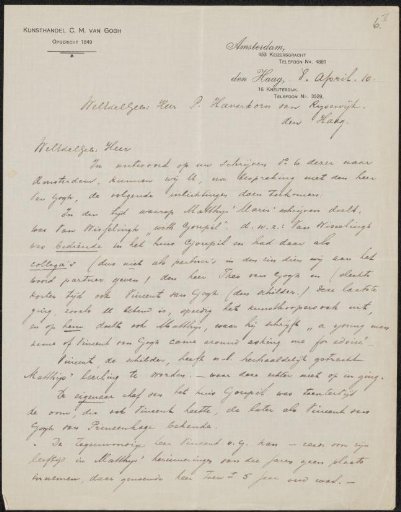 6.
KUNSTHANDEL C. M. VAN GOGH
OPGERICHT 1849
Amsterdam,
453 KEIZERSGRACHT
TELEFOON No. 4891
den Haag, 8 April 10
16 KNEUTERDIJK
TELEFOON No. 3529
WelEdelGeb. Heer P. Haverkorn van Rijsewijk
den Haag
WelEdelGeb. Heer
In antwoord op uw schrijven dezer naar
Amsterdam, kunnen wij U, na bespreking met den heer
Van Gogh, de volgende inlichtingen doen toekomen.
In den tijd waarop Matthijs Maris' schrijven doelt,
was Van Wisselingh "with Goupil" d.w.z. Van Wisselingh
was bediende in het huis Goupil en had daar als
collega's (dus niet als partners in den zin dien wij aan het
woord partner geven) den heer Theo van Gogh en (slechts
korten tijd ook Vincent van Gogh (den schilder.) Deze laatste
ging, zooals U bekend is, spoedig het kunstkoopersvak uit,
en op hem doelt ook Matthijs, waar hij schrijft "a young man
name of Vincent van Gogh came around asking me for advice".
Vincent, de schilder, heeft ook herhaaldelijk getracht
Matthijs' leerling te worden. — waar deze echter niet op in ging.
De eigenaar chef van het huis Goupil was toentertijd
de oom, die ook Vincent heette, de later als Vincent van
Gogh van Prinsenhage bekende.
De tegenwoordige heer Vincent v. G. kan — reeds om zijn
leeftijd in Matthijs' herinneringen van die jaren geen plaats
innemen, daar genoemde heer toen 5 jaar oud was. —